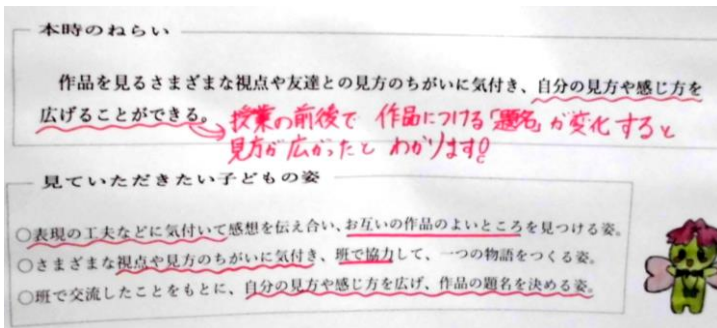 本時のねらい
作品を見るさまざまな視点や友達との見方のちがいに気付き、自分の見方や感じ方を
広げることができる。
授業の前後で 作品につける「題名」が変化すると
見方が広がったと わかります!
見ていただきたい子どもの姿
○表現の工夫などに気付いて感想を伝え合い、お互いの作品のよいところを見つける姿。
○さまざまな視点や見方のちがいに気付き、班で協力して、一つの物語をつくる姿。
○班で交流したことをもとに、自分の見方や感じ方を広げ、作品の題名を決める姿。